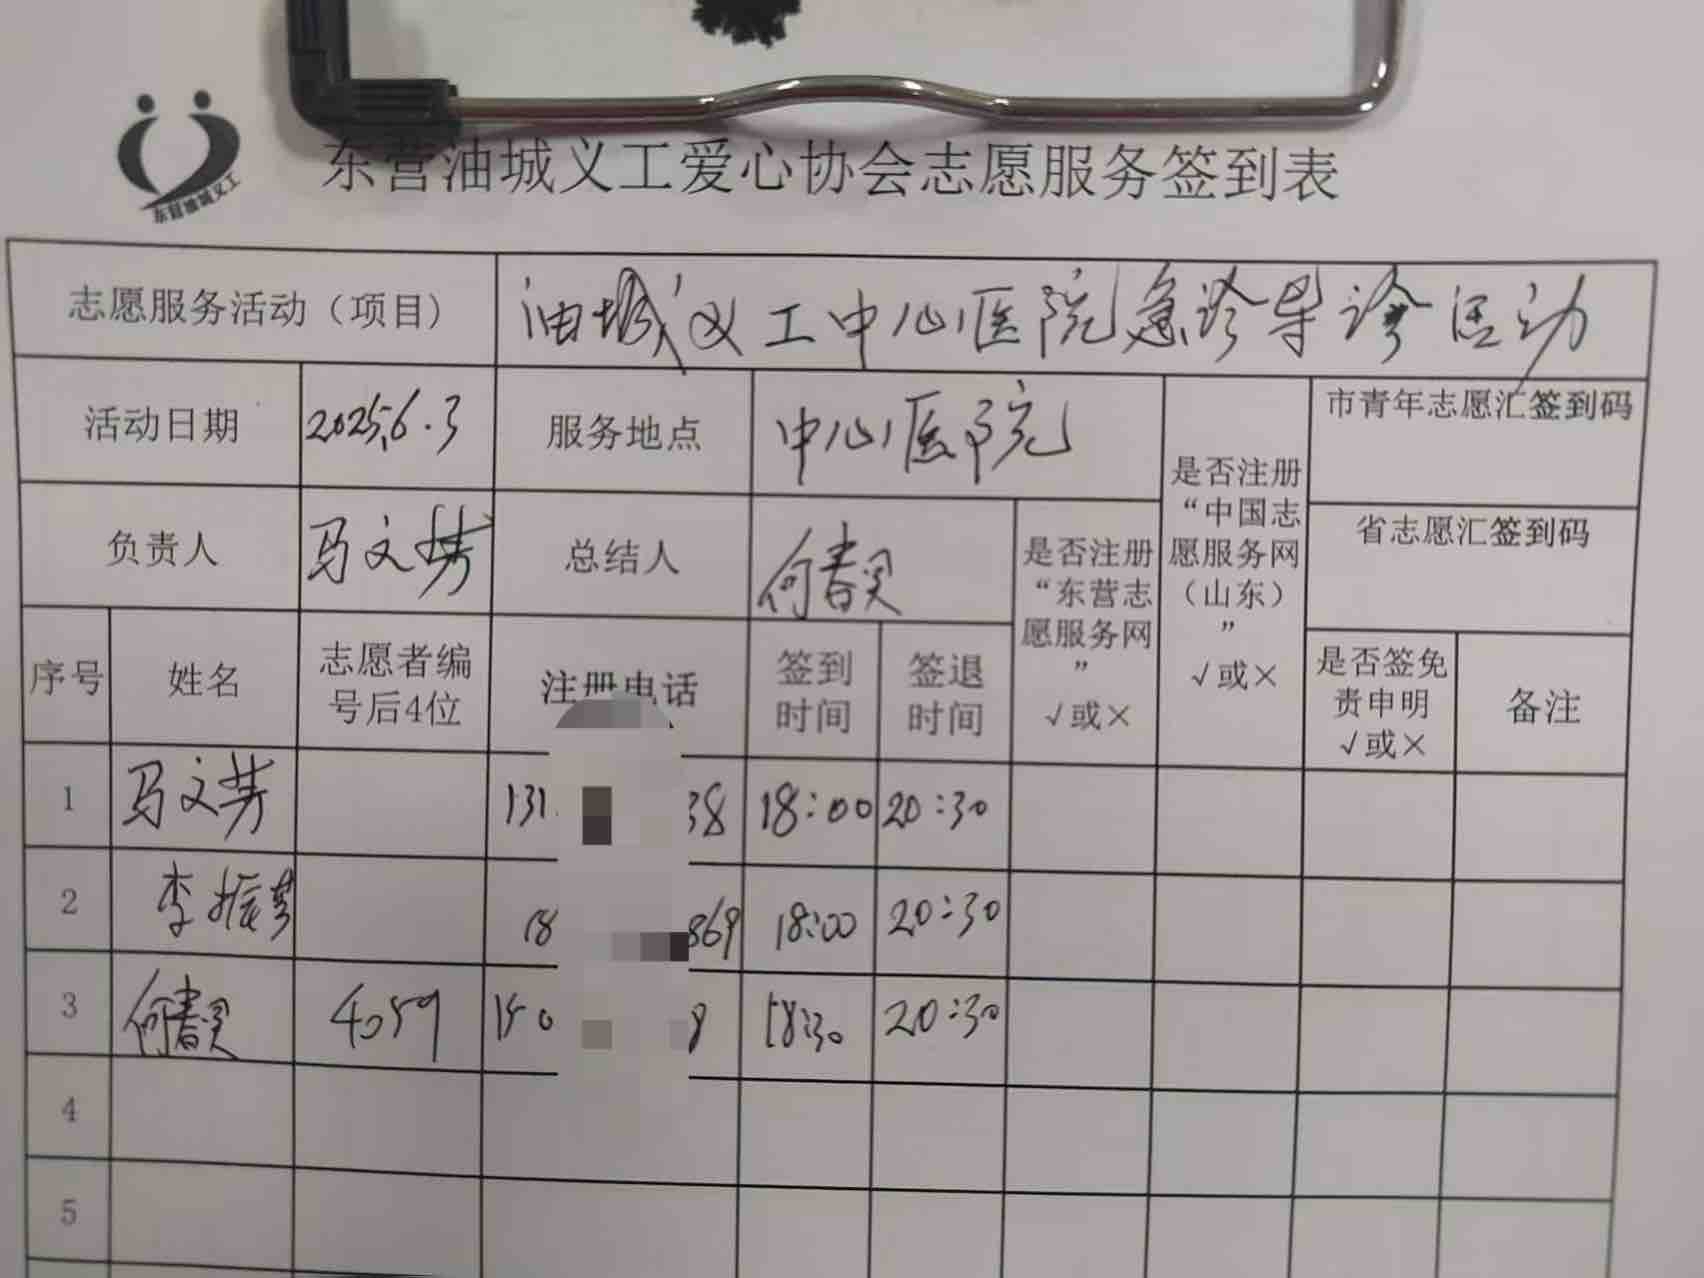 东营油城义工
东营油城义工爱心协会志愿服务签到表
志愿服务活动（项目） 油城义工中心医院急诊导诊活动
活动日期 2025.6.3 服务地点 中心医院
是否注册“中国志愿服务网（山东）” √或×
市青年志愿汇签到码
负责人 马文芳 总结人 何春灵
是否注册“东营志愿服务网” √或×
省志愿汇签到码
序号 姓名 志愿者编号后4位 注册电话 签到时间 签退时间 是否签免责申明 √或× 备注
1 马文芳 131 38 18:00 20:30
2 李振 18 869 18:00 20:30
3 何春灵 4059 150 8 18:30 20:30
4
5